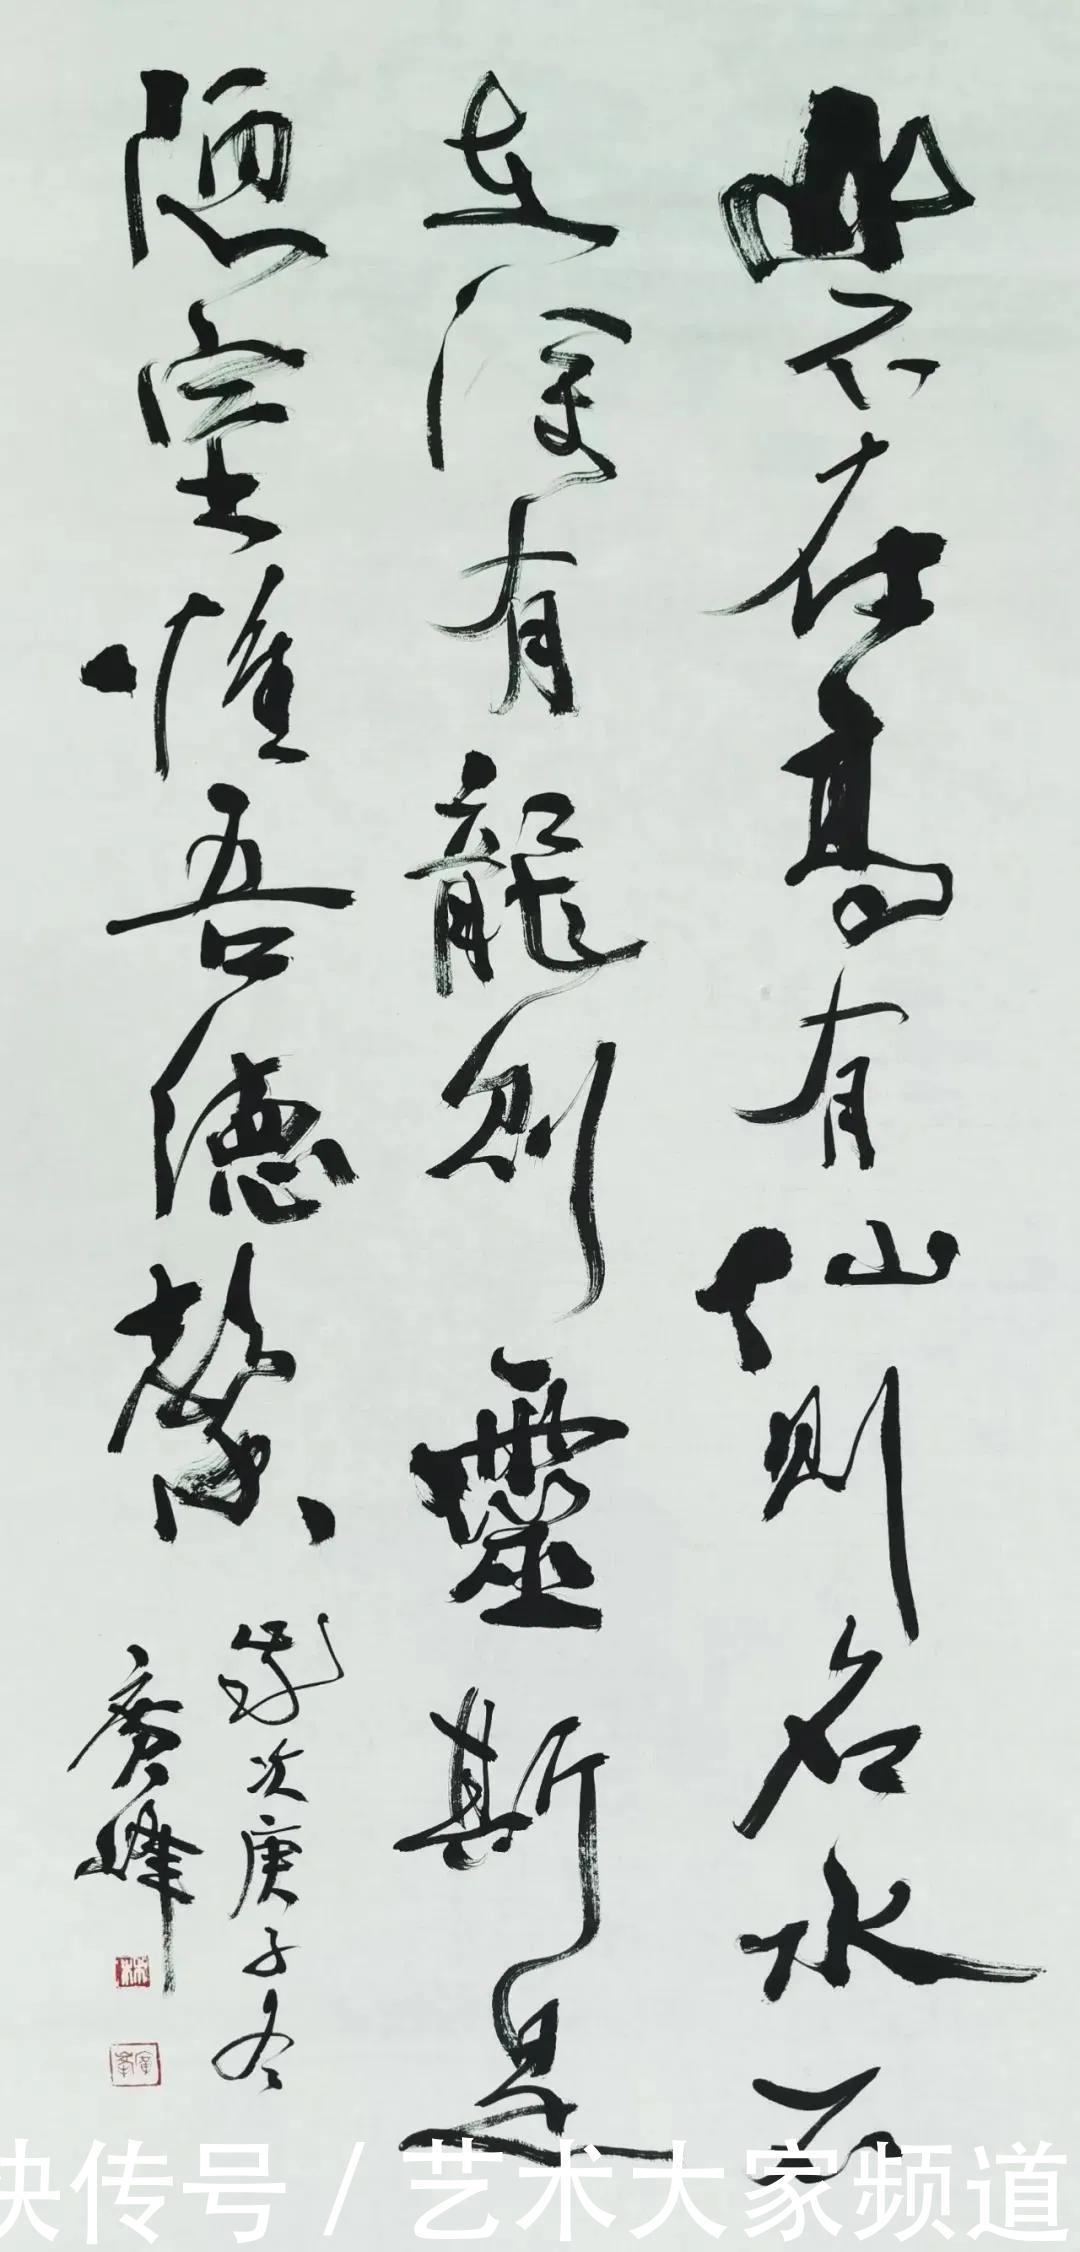 山不在高有仙则名水不
在深有龍则靈斯是
陋室惟吾德馨
歲次庚子冬
廣峰
快传号 / 艺术大家频道